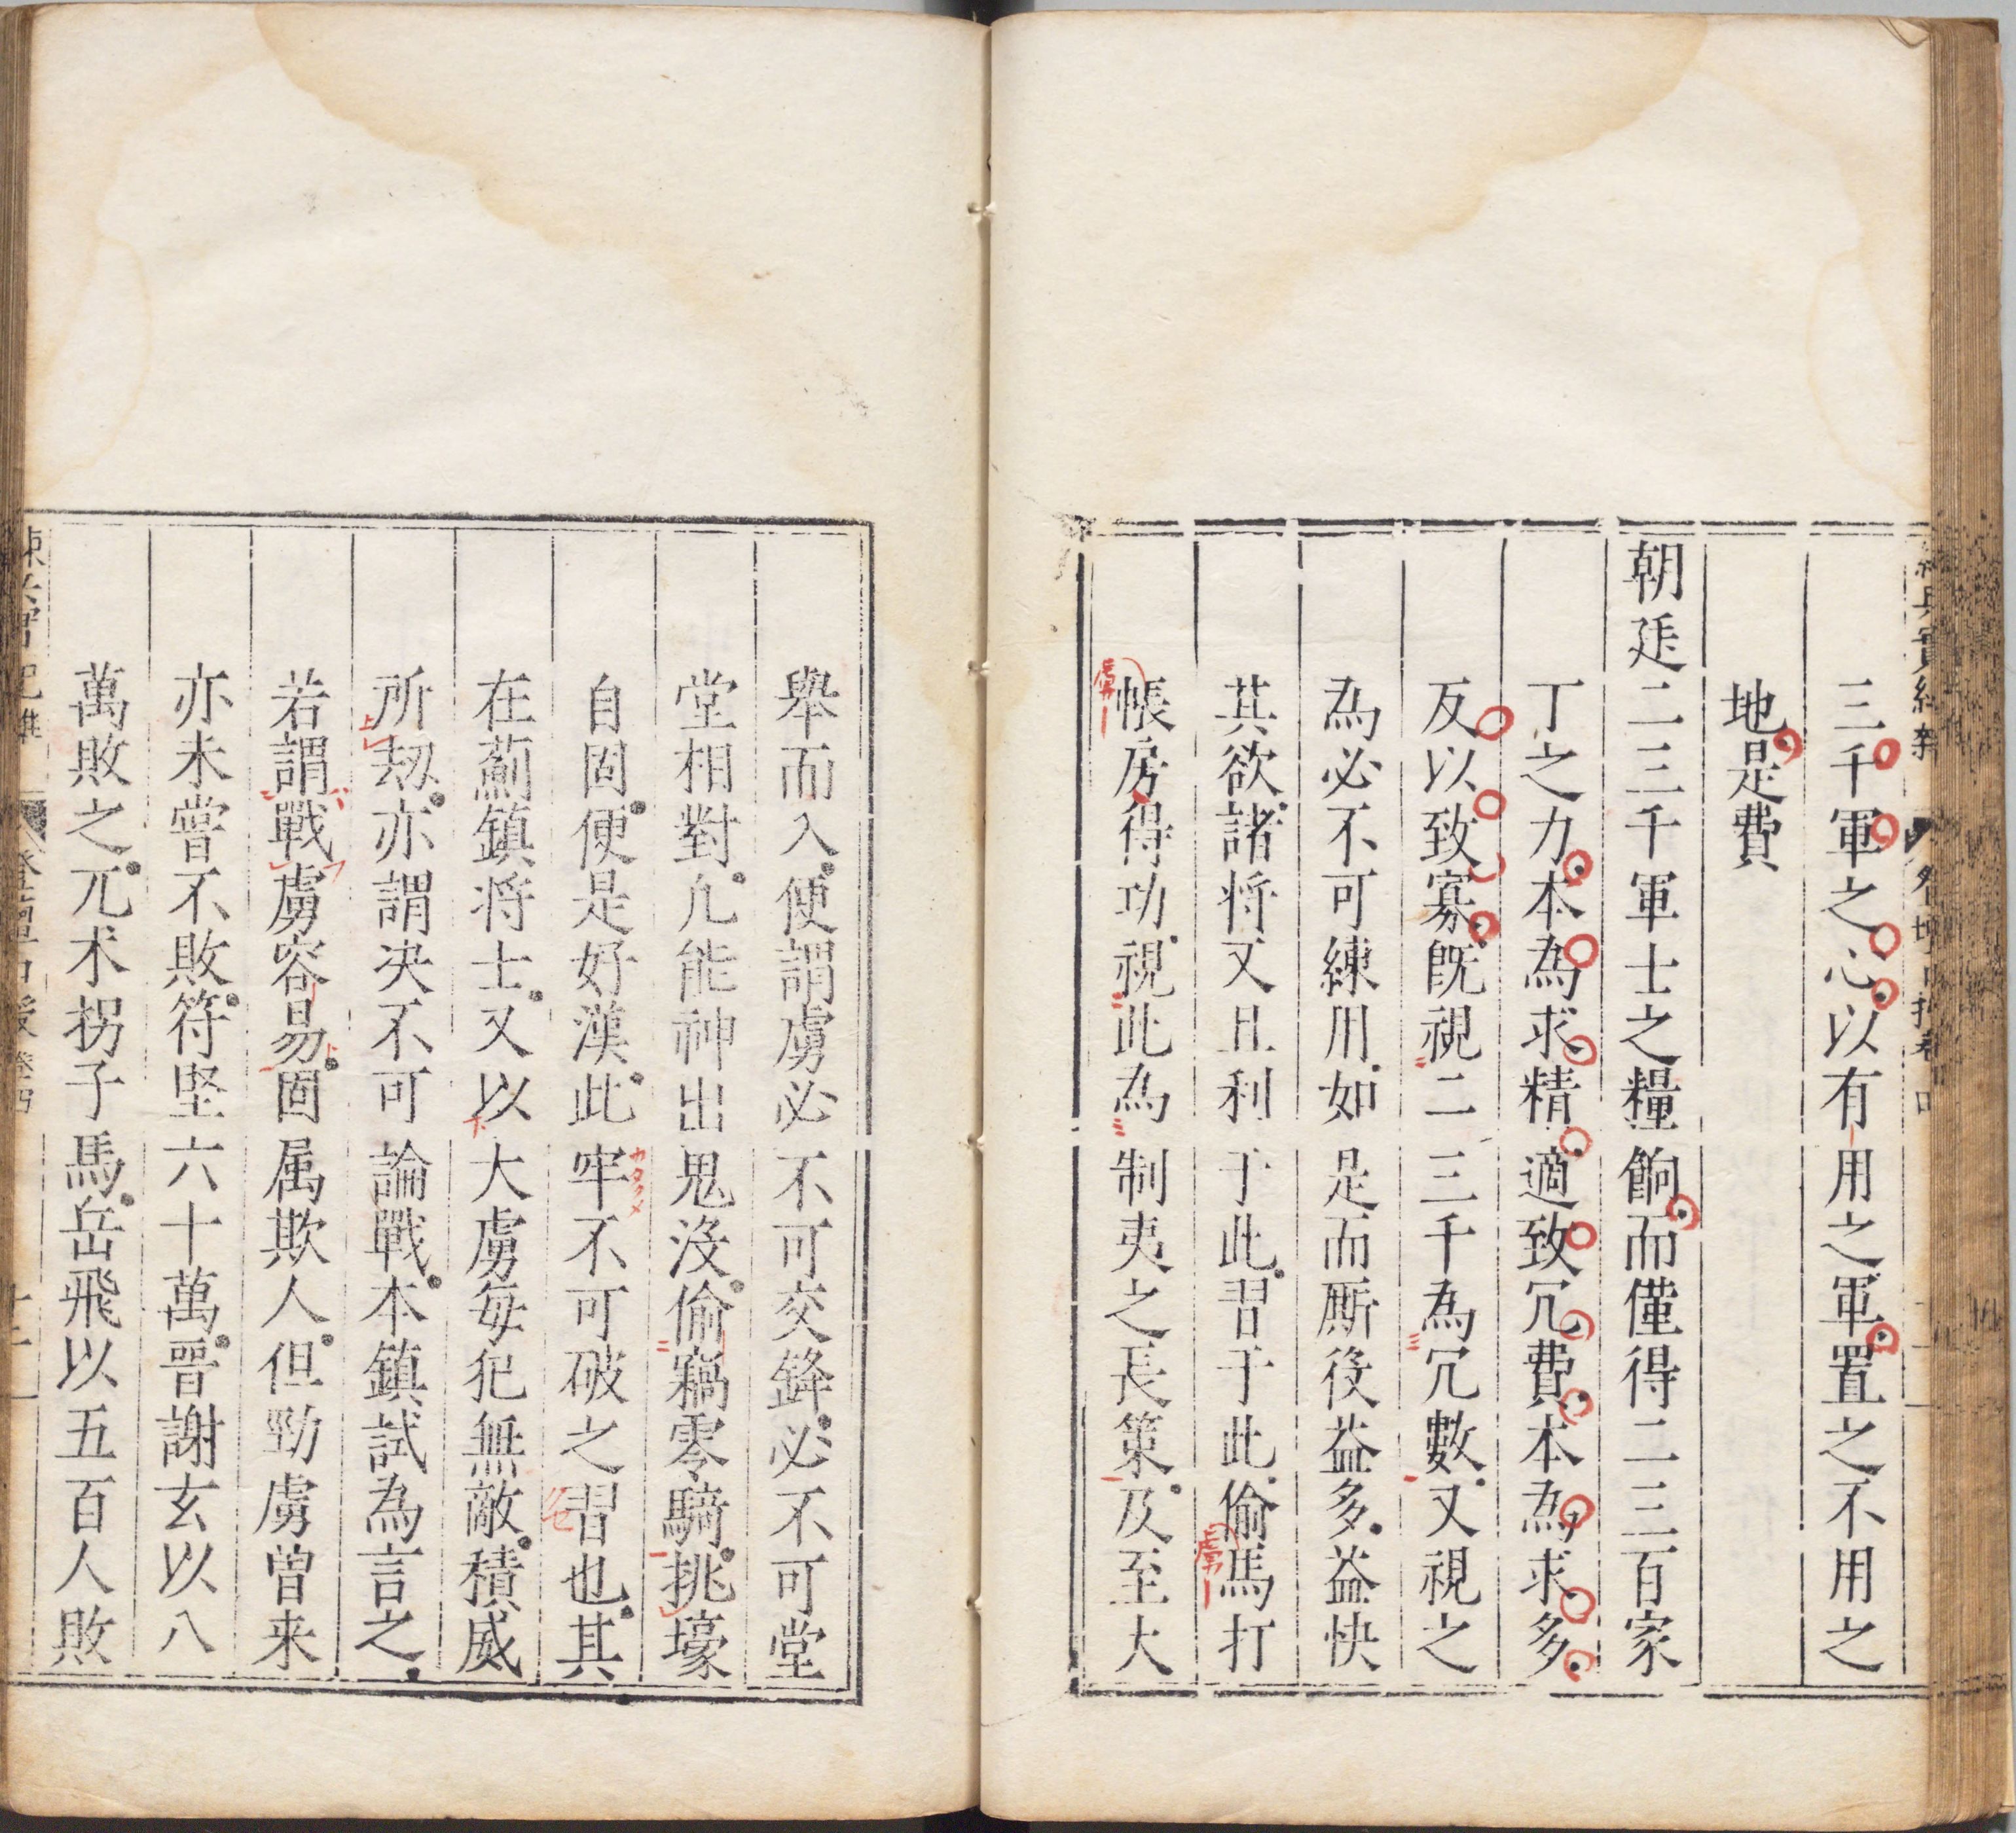 三千軍之心以有用之軍置之不用之
地是費
朝廷二三千軍士之糧餉而僅得二三百家
丁之力本為求精適致冗費本為求多
反以致寡旣視二三千為冗數又視之
為必不可練用如是而厮役益多益快
其欲諸将又且利于此習于此偷馬打
帳房得功視此為制夷之長策及至大
舉而入便謂虜必不可交鋒必不可堂
堂相對凢能神出鬼没偷竊零騎挑壕
自固便是好漢此牢不可破之習也其
在薊鎮将士又以大虜每犯無敵積威
所刼亦謂决不可論戰本鎮試為言之
若謂戰虜容易固属欺人但勁虜曾来
亦未嘗不敗符坚六十萬晉謝玄以八
萬敗之兀术拐子馬岳飛以五百人敗